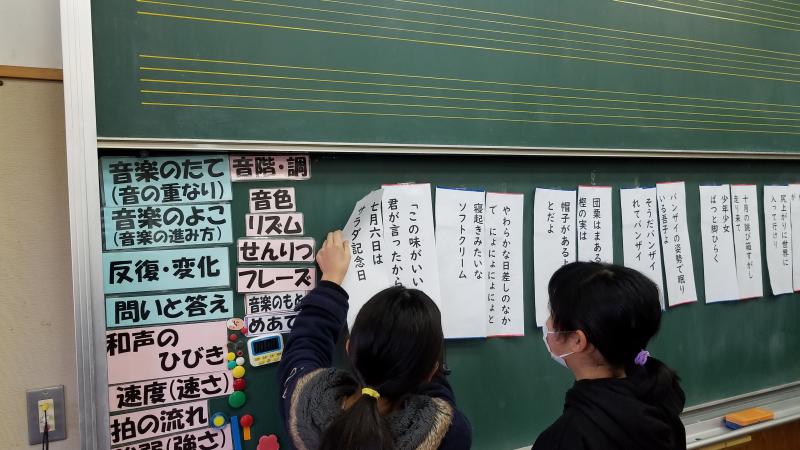 音楽のたて
(音の重なり)
音楽のよこ
(音楽の進み方)
反復・変化
問いと答え
和声の
ひびき
速度(速さ)
拍の流れ
強弱(強さ)
音階・調
音色
リズム
せんりつ
フレーズ
音楽のもと
めあて
「この味がいい
君が言ったから
七月六日は
サラダ記念日
やわらかな日差しのなか
で にょにょにょにょと
寝起きみたいな
ソフトクリーム
団栗はまあるい
樫の実は
帽子がある
とだよ
バンザイの姿勢で眠り
いる吾子よ
そうだバンザイ
れてバンザイ
十月の跳び箱すがし
走り来て
少年少女
ぱっと脚ひらく
尻上がりに世界に
入って行けり